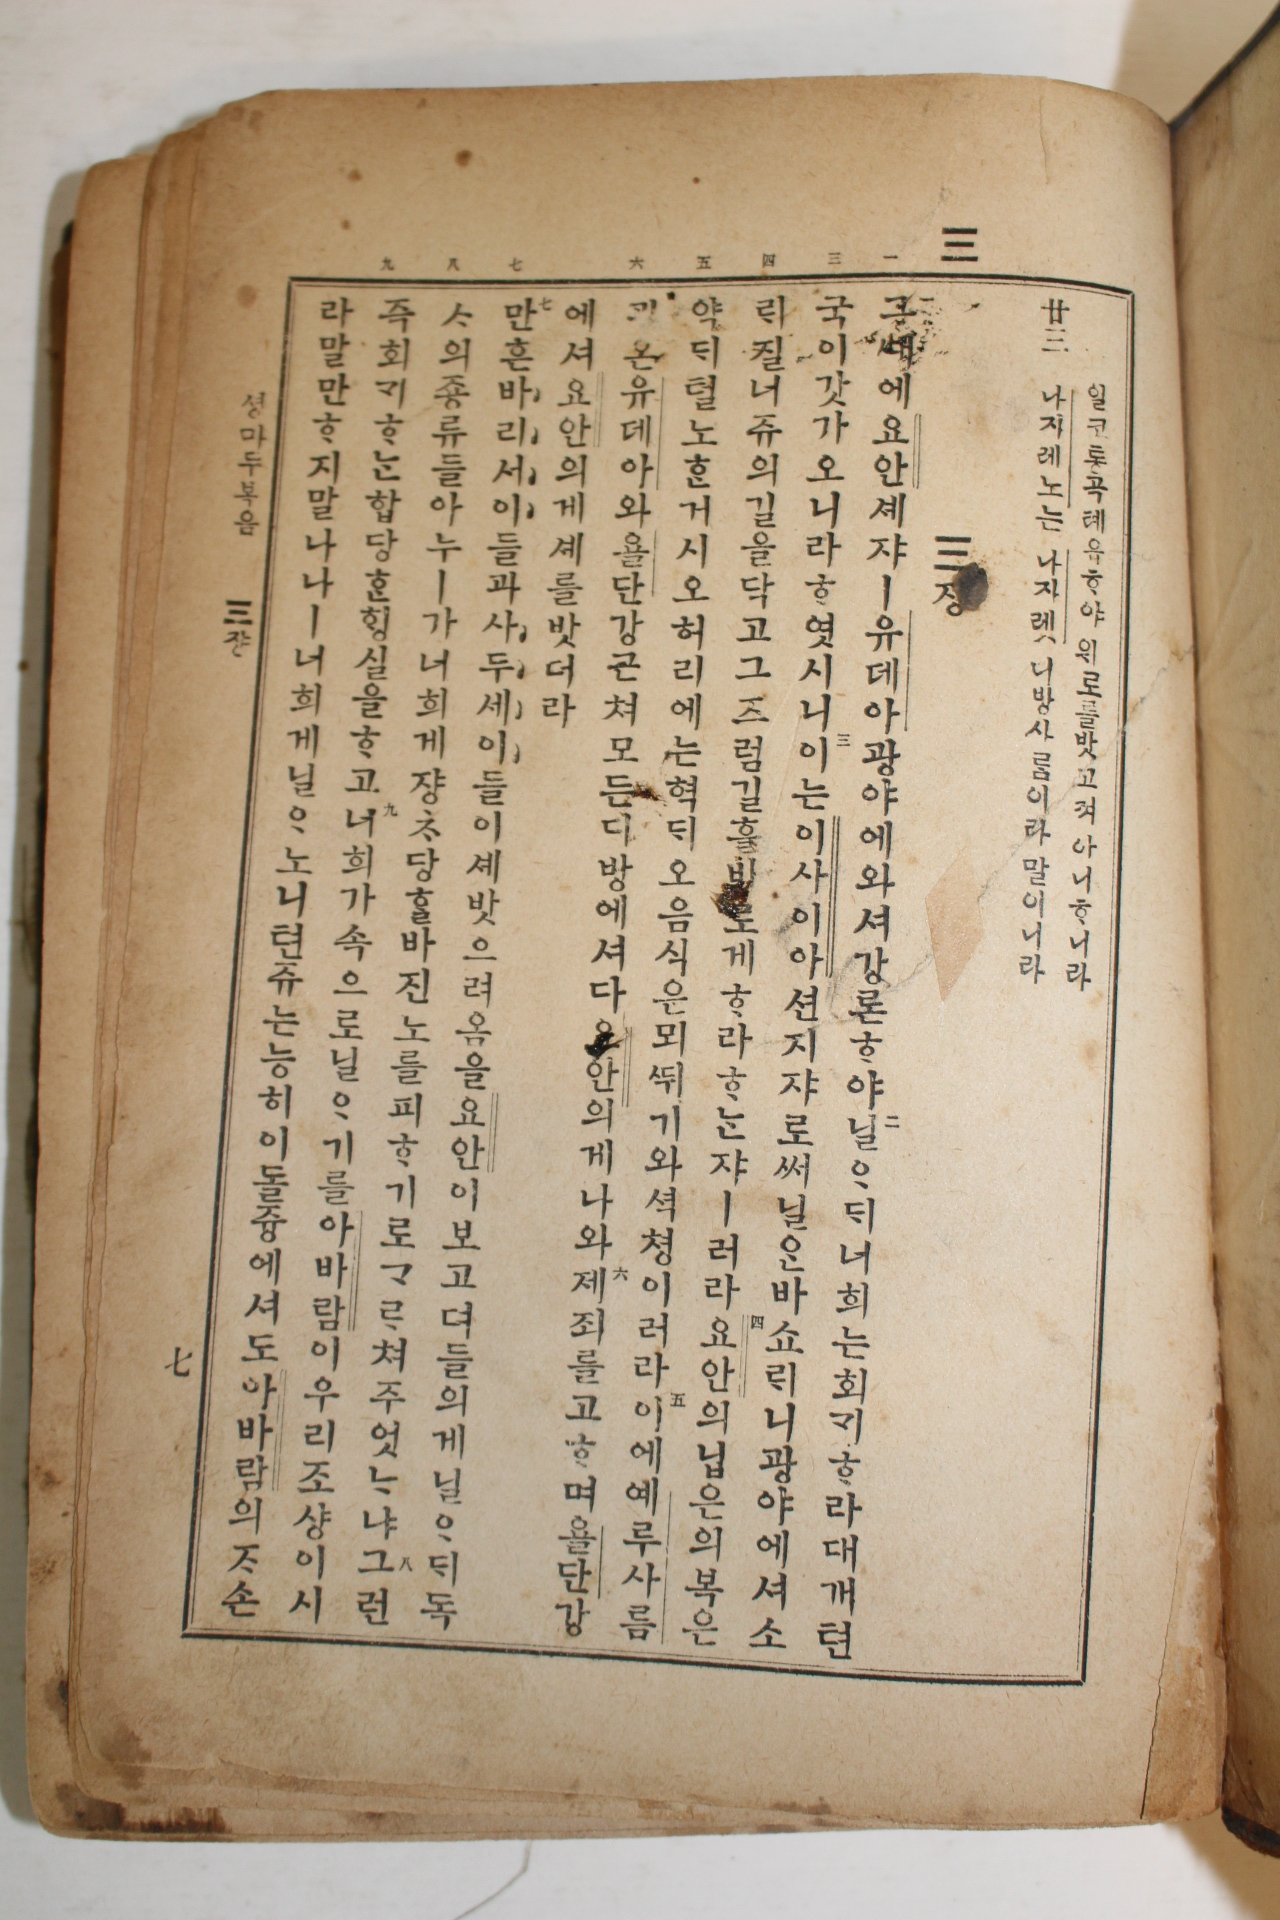 三
일코ᄅᆞᆺ곡톄유ᄒᆞ야 위로를밧고져 아니ᄒᆞ니라
廿三 나자레노는 나자렛 디방사ᄅᆞᆷ이라 말이니라
三쟝
에요안셰쟈ㅣ유데아광야에와셔강론ᄒᆞ야二닐ᄋᆞᄃᆡ너희는회ᄀᆡᄒᆞ라대개텬
국이갓가오니라ᄒᆞ엿시니三이는이사이아션지쟈로써닐ᄋᆞᆫ바쇼ᄅᆡ니광야에셔소
ᄅᆡ질너쥬의길을닥고그즈럼길흘바로게ᄒᆞ라ᄒᆞᄂᆞᆫ쟈ㅣ러라四요안의닙은의복은
약ᄃᆡ털노ᄒᆞᆫ거시오허리에는혁ᄃᆡ오음식은뫼ᄯᅱ기와셕쳥이러라五이에예루사름
온유데아와욜단강근쳐모든디방에셔다요안의게나와六졔죄를고ᄒᆞ며욜단강
에셔요안의게셰를밧더라
七만흔바리서이들과사두세이들이셰밧으려옴을요안이보고뎌들의게닐ᄋᆞᄃᆡ독
ᄉᆞ의죵류들아누ㅣ가너희게쟝ᄎᆞ당ᄒᆞᆯ바진노를피ᄒᆞ기로ᄀᆞᄅᆞ쳐주엇ᄂᆞ냐八그런
즉회ᄀᆡᄒᆞᄂᆞᆫ합당ᄒᆞᆫᄒᆡᆼ실을ᄒᆞ고九너희가속으로닐ᄋᆞ기를아바람이우리조샹이시
라말만ᄒᆞ지말나나ㅣ너희게닐ᄋᆞ노니텬쥬는능히이돌즁에셔도아바람의ᄌᆞ손
一 三 四 五 六 七 八 九
셩마두복음 三쟝
七